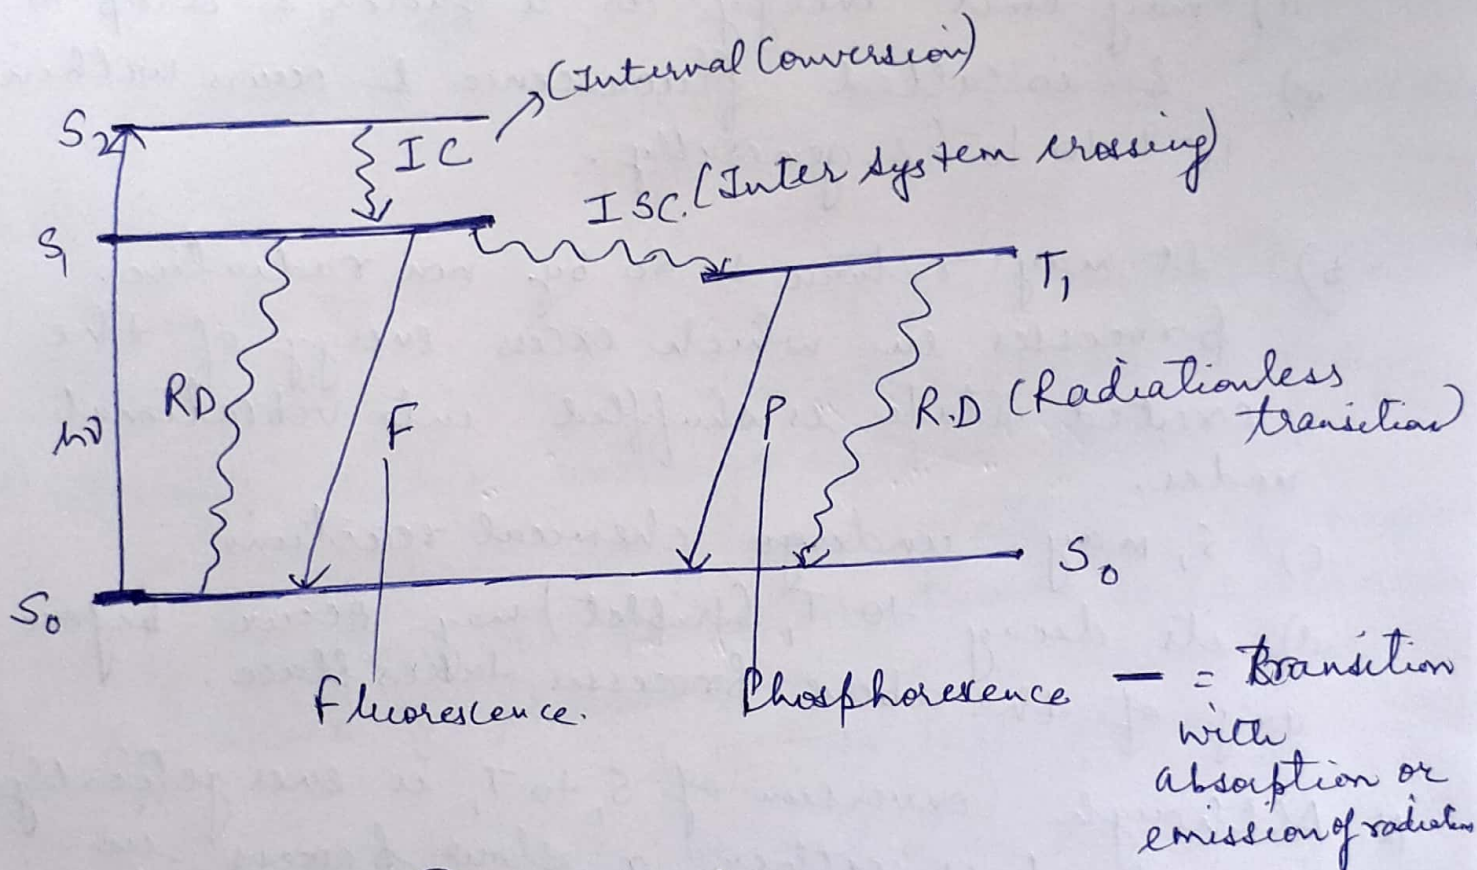 (Internal Conversion)
S2
IC
ISC. (Inter system crossing)
S1
T1
RD
F
P
R.D (Radiationless
transition)
hν
S0
S0
Fluorescence.
Phosphoresence
— = Transition
with
absorption or
emission of radiation